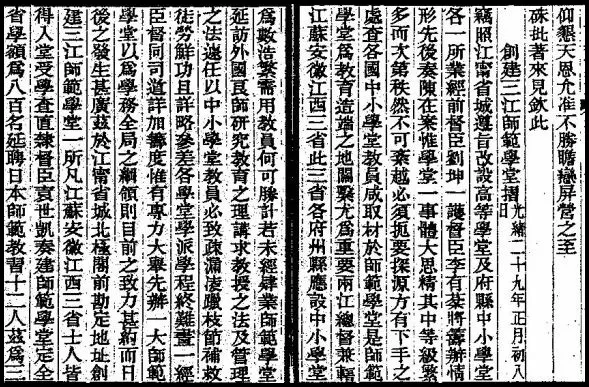 仰懇天恩允准不勝瞻戀屏營之至
硃批著來見欽此
創建三江師範學堂摺 光緒二十九年正月初八日
竊照江甯省城遵旨改設高等學堂及府縣中小學堂
各一所業經前督臣劉坤一護督臣李有棻將籌辦情
形先後奏陳在案惟學堂一事體大思精其中等級繁
多而次第秩然不可紊越必須扼要探源方有下手之
處查各國中小學堂教員咸取材於師範學堂是師範
學堂爲教育造端之地關繫尤爲重要兩江總督兼轄
江蘇安徽江西三省此三省各府州縣應設中小學堂
爲數浩繁需用教員何可勝計若未經肄業師範學堂
延訪外國良師研究教育之理講求教授之法及管理
之法遽任以中小學堂教員必致疏漏淩躐枝節補救
徒勞鮮功且詳略參差各學堂學派學程終難畫一經
臣督同司道詳加籌度惟有專力大舉先辦一大師範
學堂以爲學務全局之綱領則目前之致力甚約而日
後之發生甚廣茲於江甯省城北極閣前勘定地址創
建三江師範學堂一所凡江蘇安徽江西三省士人皆
得入堂受學查直隸督臣袁世凱奏建師範學堂定全
省學額爲八百名延聘日本師範教習十二人茲爲三